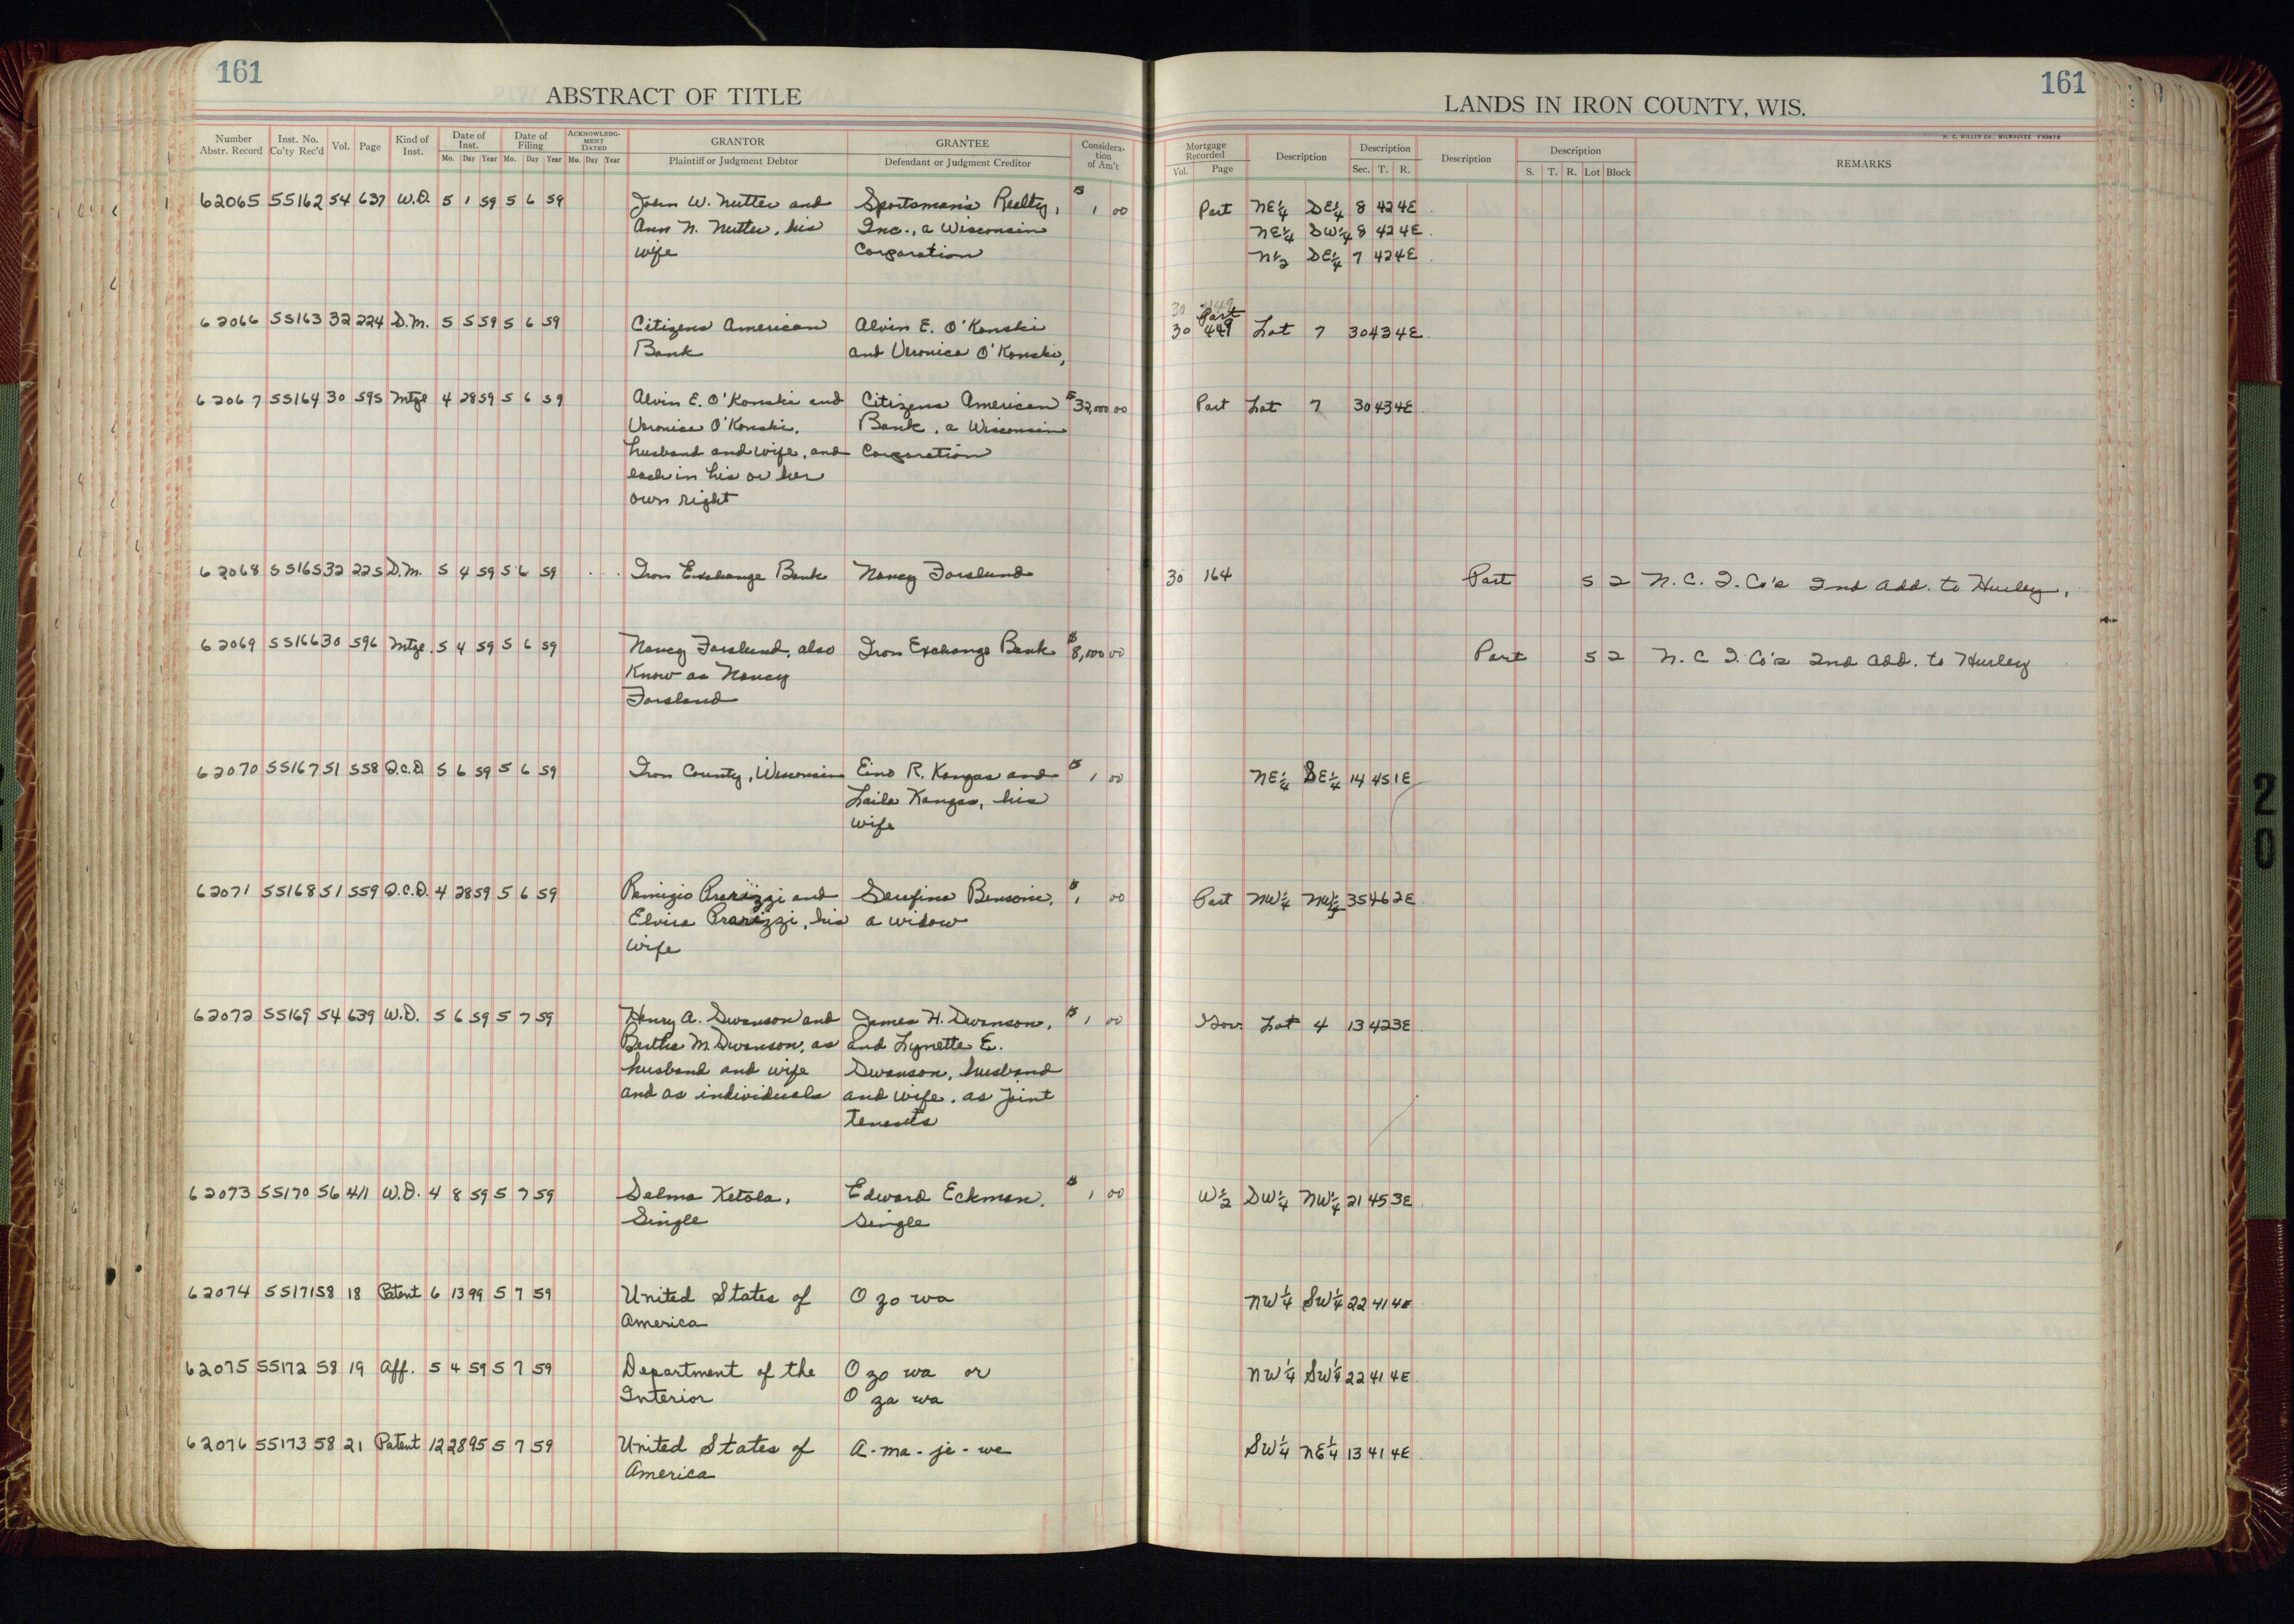 161
ABSTRACT OF TITLE
Number Abstr. Record Inst. No. Co'ty Rec'd Vol. Page Kind of Inst. Date of Inst. Mo. Day Year Date of Filing Mo. Day Year ACKNOWLEDGMENT DATED Mo. Day Year GRANTOR Plaintiff or Judgment Debtor GRANTEE Defendant or Judgment Creditor Consideration of Am't
161
LANDS IN IRON COUNTY, WIS.
H. C. MILLER CO., MILWAUKEE
Mortgage Recorded Vol. Page Description Description Sec. T. R. Description Description S. T. R. Lot Block REMARKS
62065 55162 54 637 W.D. 5 1 59 5 6 59 John W. Nutter and Sportsman's Realty, $ 1 00 Part NE¼ SE¼ 8 42 4E
Ann N. Nutter, his Inc., a Wisconsin NE¼ SW¼ 8 42 4E
wife Corporation N½ SE¼ 7 42 4E
30 449
Part
62066 55163 32 224 D.M. 5 5 59 5 6 59 Citizens American Alvin E. O'Konski 30 449 Lot 7 30 43 4E
Bank and Veronica O'Konski,
62067 55164 30 595 Mtge 4 28 59 5 6 59 Alvin E. O'Konski and Citizens American $32,000 00 Part Lot 7 30 43 4E
Veronica O'Konski, Bank, a Wisconsin
husband and wife, and Corporation
each in his or her
own right
62068 55165 32 225 D.M. 5 4 59 5 6 59 Iron Exchange Bank Nancy Forslund 30 164 Part 5 2 N. C. I. Co's 2nd Add. to Hurley.
62069 55166 30 596 Mtge. 5 4 59 5 6 59 Nancy Forslund, also Iron Exchange Bank $8,000 00 Part 5 2 N. C I. Co's 2nd Add. to Hurley
Know as Nancy
Forsland
62070 55167 51 558 Q.C.D. 5 6 59 5 6 59 Iron County, Wisconsin Eino R. Kangas and $ 1 00 NE¼ SE¼ 14 45 1E
Laila Kangas, his
wife
62071 55168 51 559 Q.C.D. 4 28 59 5 6 59 Remigio and Serafina Bensoni, $ 1 00 Part NW¼ NW¼ 35 46 2E
Elvira his a widow
wife
62072 55169 54 639 W.D. 5 6 59 5 7 59 Henry A. Swanson and James H. Swanson, $ 1 00 Gov. Lot 4 13 42 3E
Bertha M. Swanson, as and Lynette E.
husband and wife Swanson, husband
and as individuals and wife, as joint
tenants
62073 55170 56 411 W.D. 4 8 59 5 7 59 Selma Ketola, Edward Eckman, $ 1 00 W½ SW¼ NW¼ 21 45 3E
Single Single
62074 55171 58 18 Patent 6 13 99 5 7 59 United States of O zo wa NW¼ SW¼ 22 41 4E
America
62075 55172 58 19 Aff. 5 4 59 5 7 59 Department of the O zo wa or NW¼ SW¼ 22 41 4E
Interior O za wa
62076 55173 58 21 Patent 12 28 95 5 7 59 United States of A-ma-je-we SW¼ NE¼ 13 41 4E
America
20